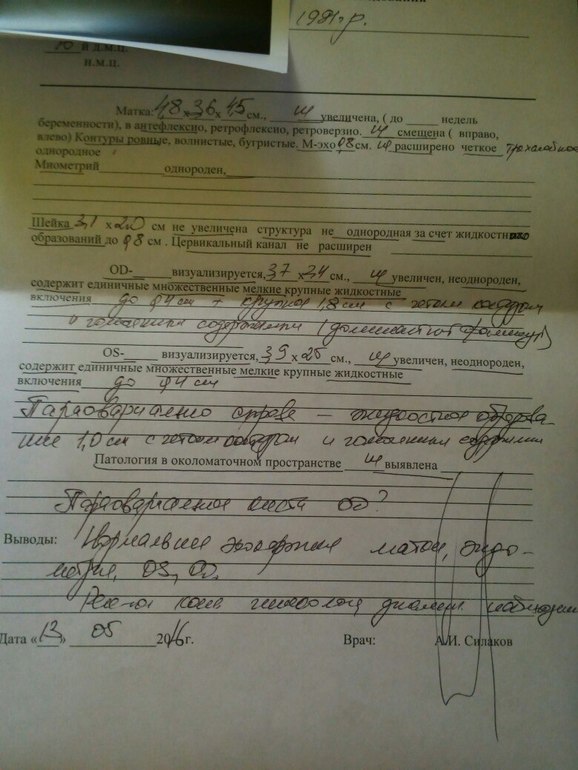 1981г.р.
10 й д.м.ц.
н.м.ц.
Матка: 48 х 36 х 45 см., не увеличена, ( до ____ недель
беременности), в антефлексио, ретрофлексио, ретроверзио. не смещена ( вправо,
влево) Контуры ровные, волнистые, бугристые. М-эхо 0,8 см. не расширено четкое трехслойное
однородное
Миометрий однороден,
Шейка 3,1 х 2,0 см не увеличена структура не однородная за счет жидкостных
образований до 0,8 см . Цервикальный канал не расширен
OD- визуализируется, 37 х 34 см., не увеличен, неоднороден,
содержит единичные множественные мелкие крупные жидкостные
включения до 0,4 см + крупное 1,8 см с четким контуром
и гомогенным содержимым (доминантный фолликул)
OS- визуализируется, 39 х 25 см., не увеличен, неоднороден,
содержит единичные множественные мелкие крупные жидкостные
включения до 0,4 см
Параовариально справа – жидкостное образова-
ние 1,0 см с четким контуром и гомогенным содержим
Патология в околоматочном пространстве не выявлена
Параовариальная киста OD?
Выводы: Нормальная эхокартина матки, эндо-
метрия, OS, OD.
Дата «13» 05 2016г. Врач: А.И. Силаков